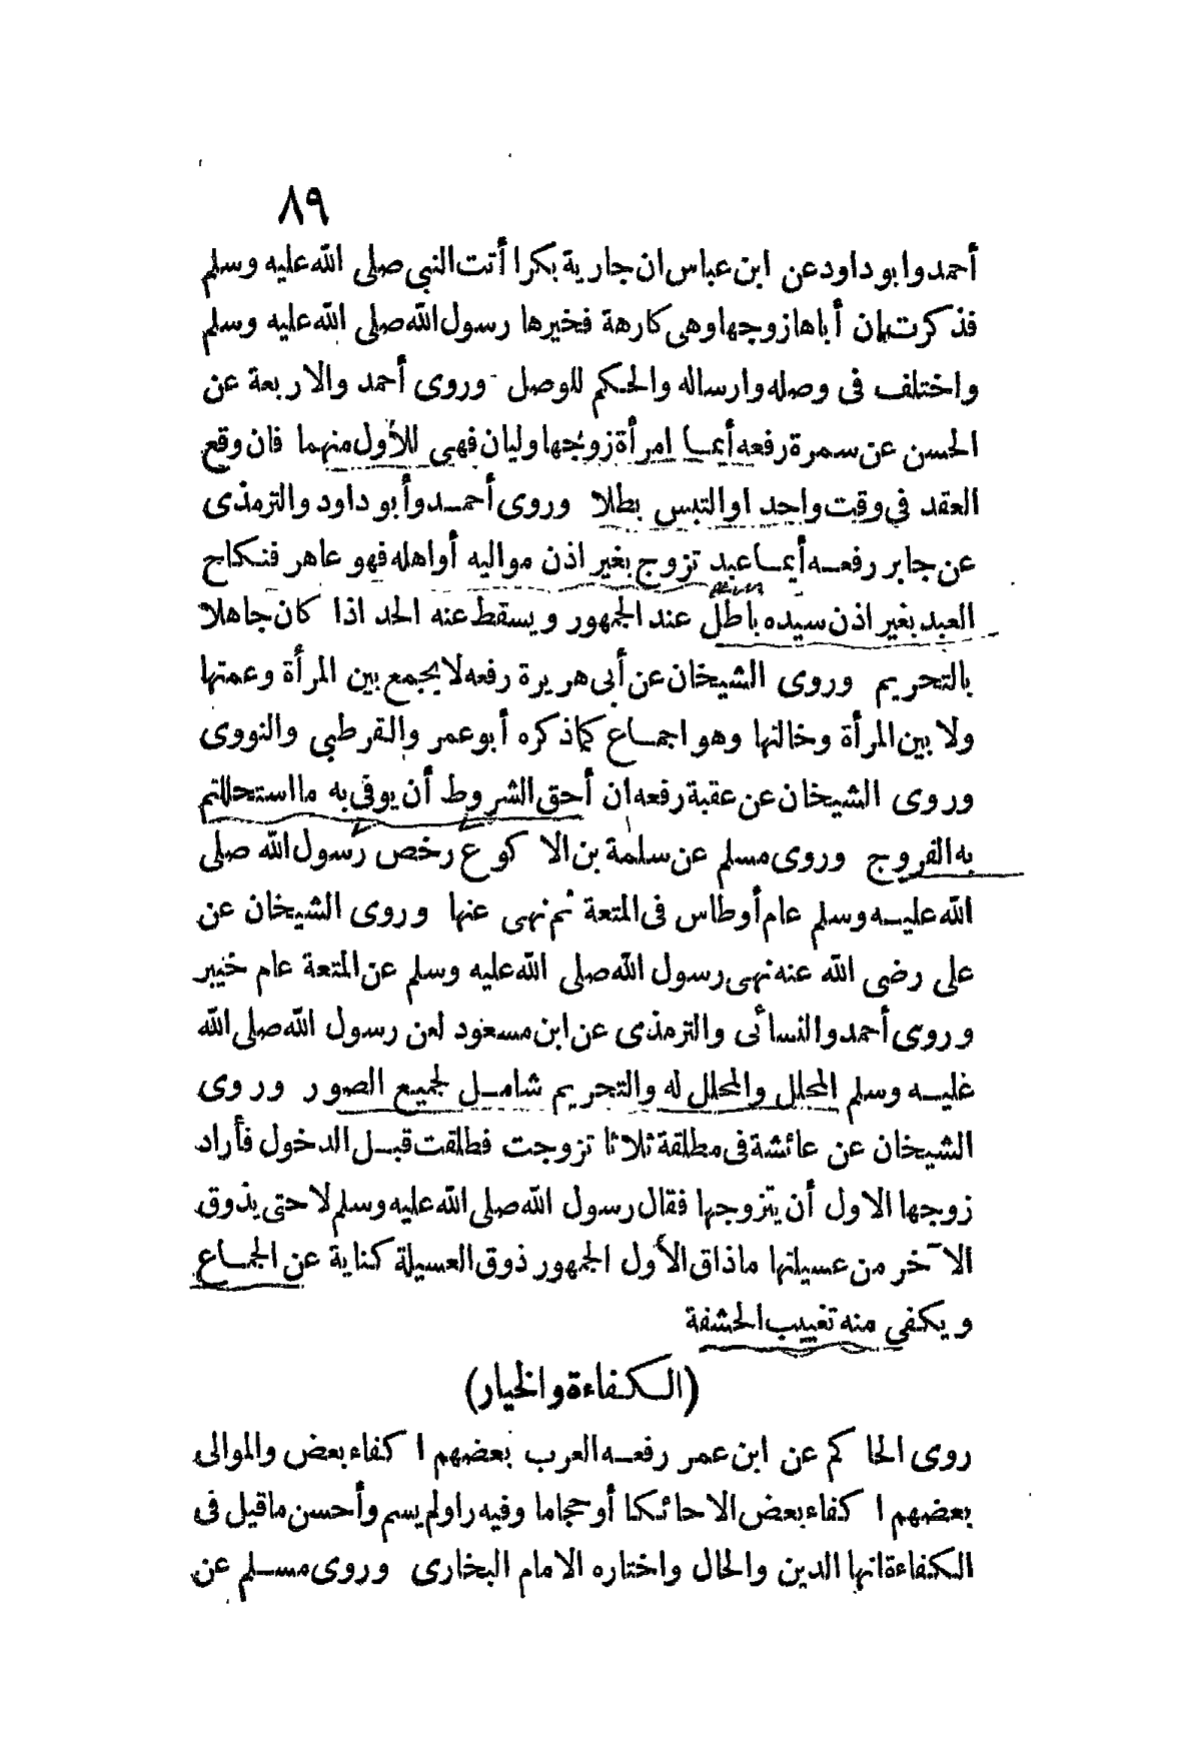 ٨٩
أحمد وابو داود عن ابن عباس ان جارية بكرا أتت النبي صلى الله عليه وسلم
فذكرت ان أباها زوجها وهى كارهة فخيرها رسول الله صلى الله عليه وسلم
واختلف فى وصله وارساله والحكم للوصل وروى أحمد والاربعة عن
الحسن عن سمرة رفعه أيما امرأة زوجها وليان فهى للأول منهما فان وقع
العقد فى وقت واحد او التبس بطلا وروى أحمد وأبو داود والترمذى
عن جابر رفعه أيما عبد تزوج بغير اذن مواليه أو اهله فهو عاهر فنكاح
العبد بغير اذن سيده باطل عند الجمهور ويسقط عنه الحد اذا كان جاهلا
بالتحريم وروى الشيخان عن أبى هريرة رفعه لا يجمع بين المرأة وعمتها
ولا بين المرأة وخالتها وهو اجماع كما ذكره أبو عمر والقرطبي والنووى
وروى الشيخان عن عقبة رفعه ان أحق الشروط أن يوفى به ما استحللتم
به الفروج وروى مسلم عن سلمة بن الاكوع رخص رسول الله صلى
الله عليه وسلم عام أوطاس فى المتعة ثم نهى عنها وروى الشيخان عن
على رضى الله عنه نهى رسول الله صلى الله عليه وسلم عن المتعة عام خيبر
وروى أحمد والنسائى والترمذى عن ابن مسعود لعن رسول الله صلى الله
عليه وسلم المحلل والمحلل له والتحريم شامل لجميع الصور وروى
الشيخان عن عائشة فى مطلقة ثلاثا تزوجت فطلقت قبل الدخول فأراد
زوجها الاول أن يتزوجها فقال رسول الله صلى الله عليه وسلم لا حتى يذوق
الآخر من عسيلتها ماذاق الأول الجمهور ذوق العسيلة كناية عن الجماع
ويكفى منه تغييب الحشفة
(الكفاءة والخيار)
روى الحاكم عن ابن عمر رفعه العرب بعضهم اكفاء بعض والموالى
بعضهم اكفاء بعض الا حائكا أو حجاما وفيه راو لم يسم وأحسن ما قيل فى
الكفاءة انها الدين والحال واختاره الامام البخارى وروى مسلم عن